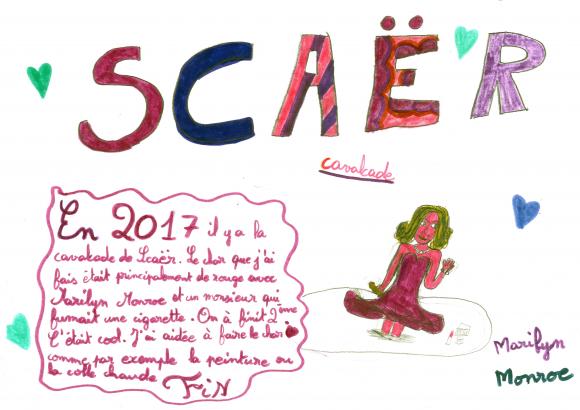 SCAËR
cavalcade
En 2017 il y a la
cavalcade de Scaër. Le char que j'ai
fais était principalement de rouge avec
Marilyn Monroe et un monsieur qui
fumait une cigarette. On à finit 2ème
C'était cool. J'ai aidée à faire le char
comme par exemple la peinture ou
la colle chaude FiN
Marilyn
Monroe